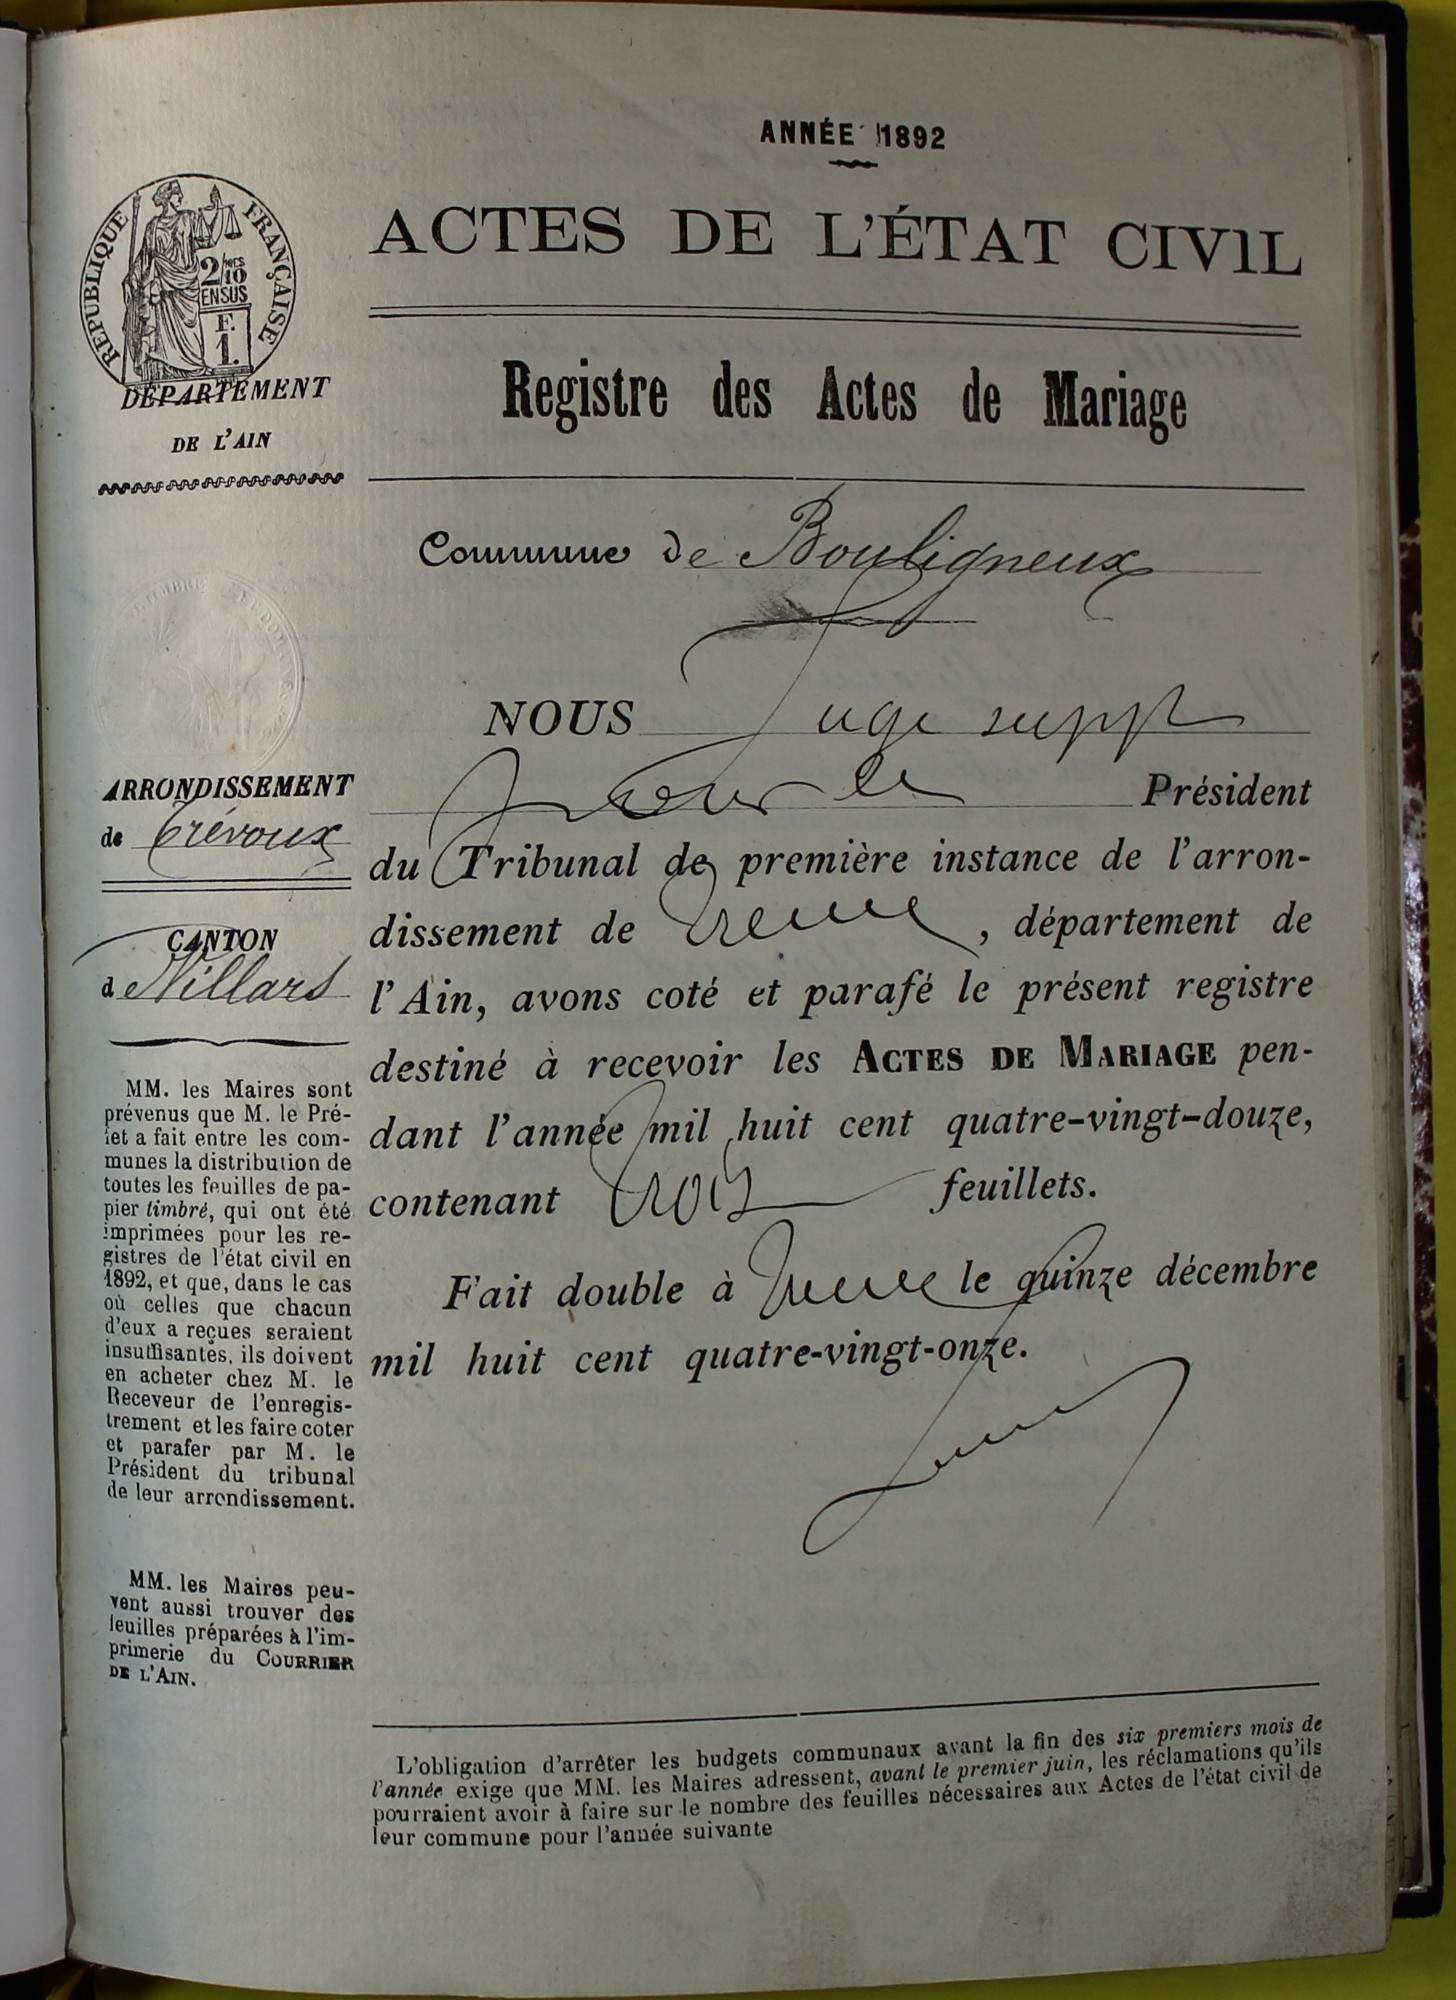 ANNÉE 1892
ACTES DE L'ÉTAT CIVIL
RÉPUBLIQUE FRANÇAISE
2/10
EN SUS
F.
1.
DÉPARTEMENT
DE L'AIN
Registre des Actes de Mariage
Commune de Bouligneux
NOUS Juge suppt
pour le Président
du Tribunal de première instance de l'arron-
dissement de Trévoux, département de
l'Ain, avons coté et parafé le présent registre
destiné à recevoir les ACTES DE MARIAGE pen-
dant l'année mil huit cent quatre-vingt-douze,
contenant trois feuillets.
Fait double à Trévoux le quinze décembre
mil huit cent quatre-vingt-onze.
ARRONDISSEMENT
de Trévoux
CANTON
d Villars
MM. les Maires sont
prévenus que M. le Pré-
fet a fait entre les com-
munes la distribution de
toutes les feuilles de pa-
pier timbré, qui ont été
imprimées pour les re-
gistres de l'état civil en
1892, et que, dans le cas
où celles que chacun
d'eux a reçues seraient
insuffisantes, ils doivent
en acheter chez M. le
Receveur de l'enregis-
trement et les faire coter
et parafer par M. le
Président du tribunal
de leur arrondissement.
MM. les Maires peu-
vent aussi trouver des
feuilles préparées à l'im-
primerie du COURRIER
DE L'AIN.
L'obligation d'arrêter les budgets communaux avant la fin des six premiers mois de
l'année exige que MM. les Maires adressent, avant le premier juin, les réclamations qu'ils
pourraient avoir à faire sur le nombre des feuilles nécessaires aux Actes de l'état civil de
leur commune pour l'année suivante